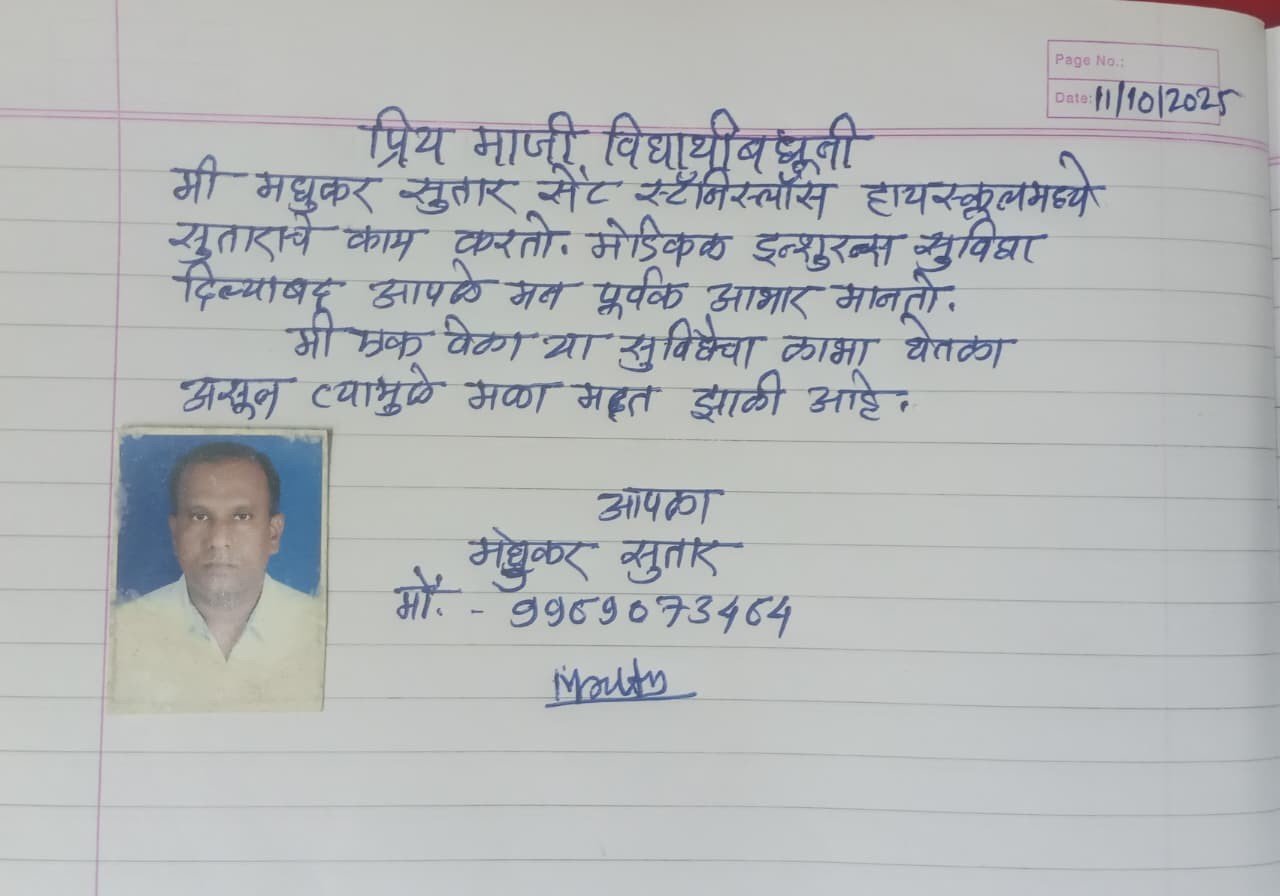 Page No.:
Date: 11/10/2025
प्रिय माजी विद्यार्थीबंधूनी
मी मधुकर सुतार सेंट स्टॅनिस्लॉस हायस्कूलमध्ये
सुताराचे काम करतो. मेडिकल इन्शुरन्स सुविधा
दिल्याबद्द आपले मन पूर्वक आभार मानतो.
मी एक वेळा या सुविधेचा लाभा घेतला
असून त्यामुळे मला मदत झाली आहे.
आपला
मधुकर सुतार
मों. - 9969073464